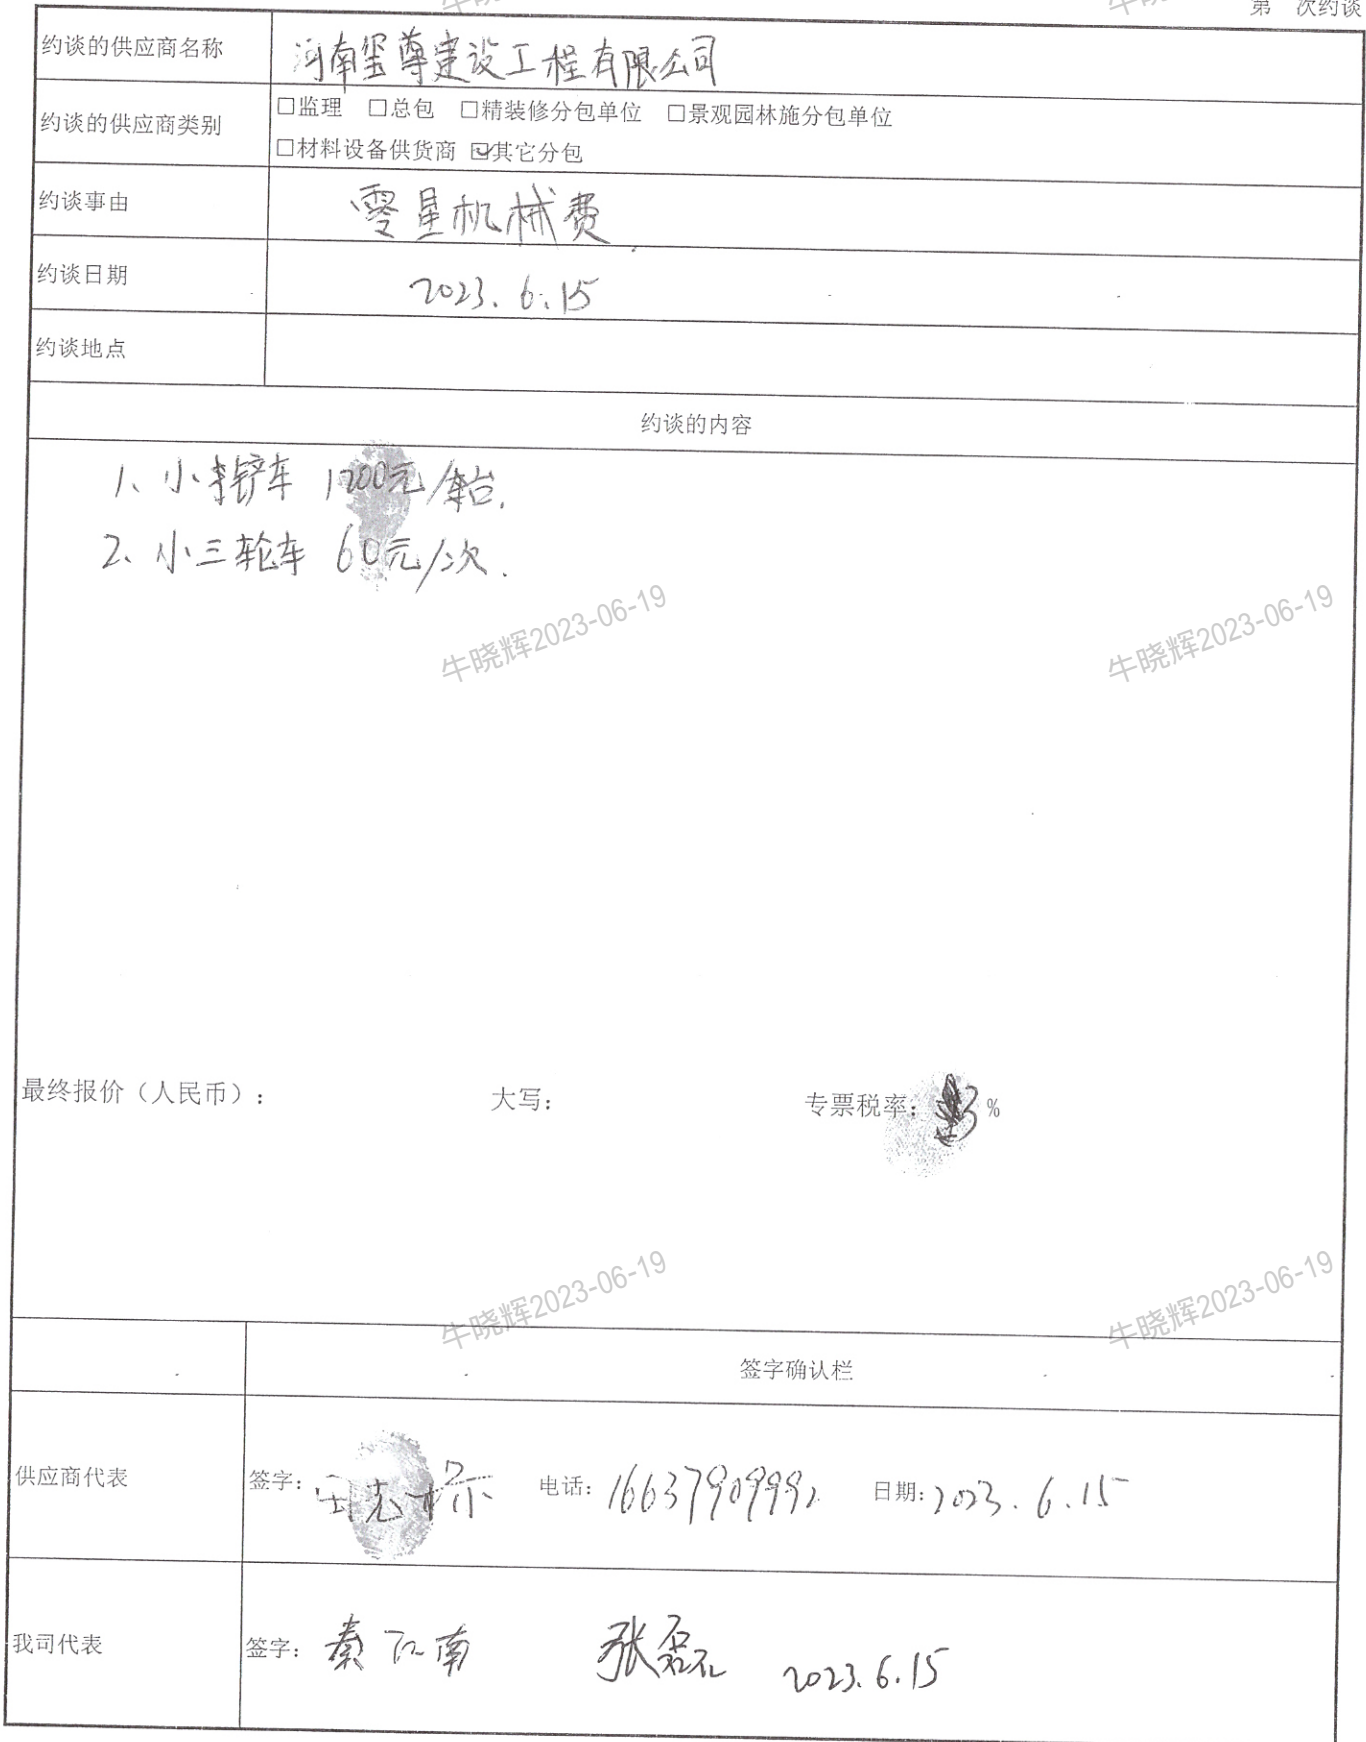 第 次约谈
约谈的供应商名称 河南玺尊建设工程有限公司
约谈的供应商类别 □监理 □总包 □精装修分包单位 □景观园林施分包单位
□材料设备供货商 ☑其它分包
约谈事由 零星机械费
约谈日期 2023.6.15
约谈地点
约谈的内容
1、小铲车 1200元/台.
2、小三轮车 60元/次.
牛晓辉2023-06-19 牛晓辉2023-06-19
最终报价（人民币）： 大写： 专票税率： 3 %
牛晓辉2023-06-19 牛晓辉2023-06-19
签字确认栏
供应商代表 签字： 电话： 日期：2023.6.15
我司代表 签字： 秦 南 张磊 2023.6.15